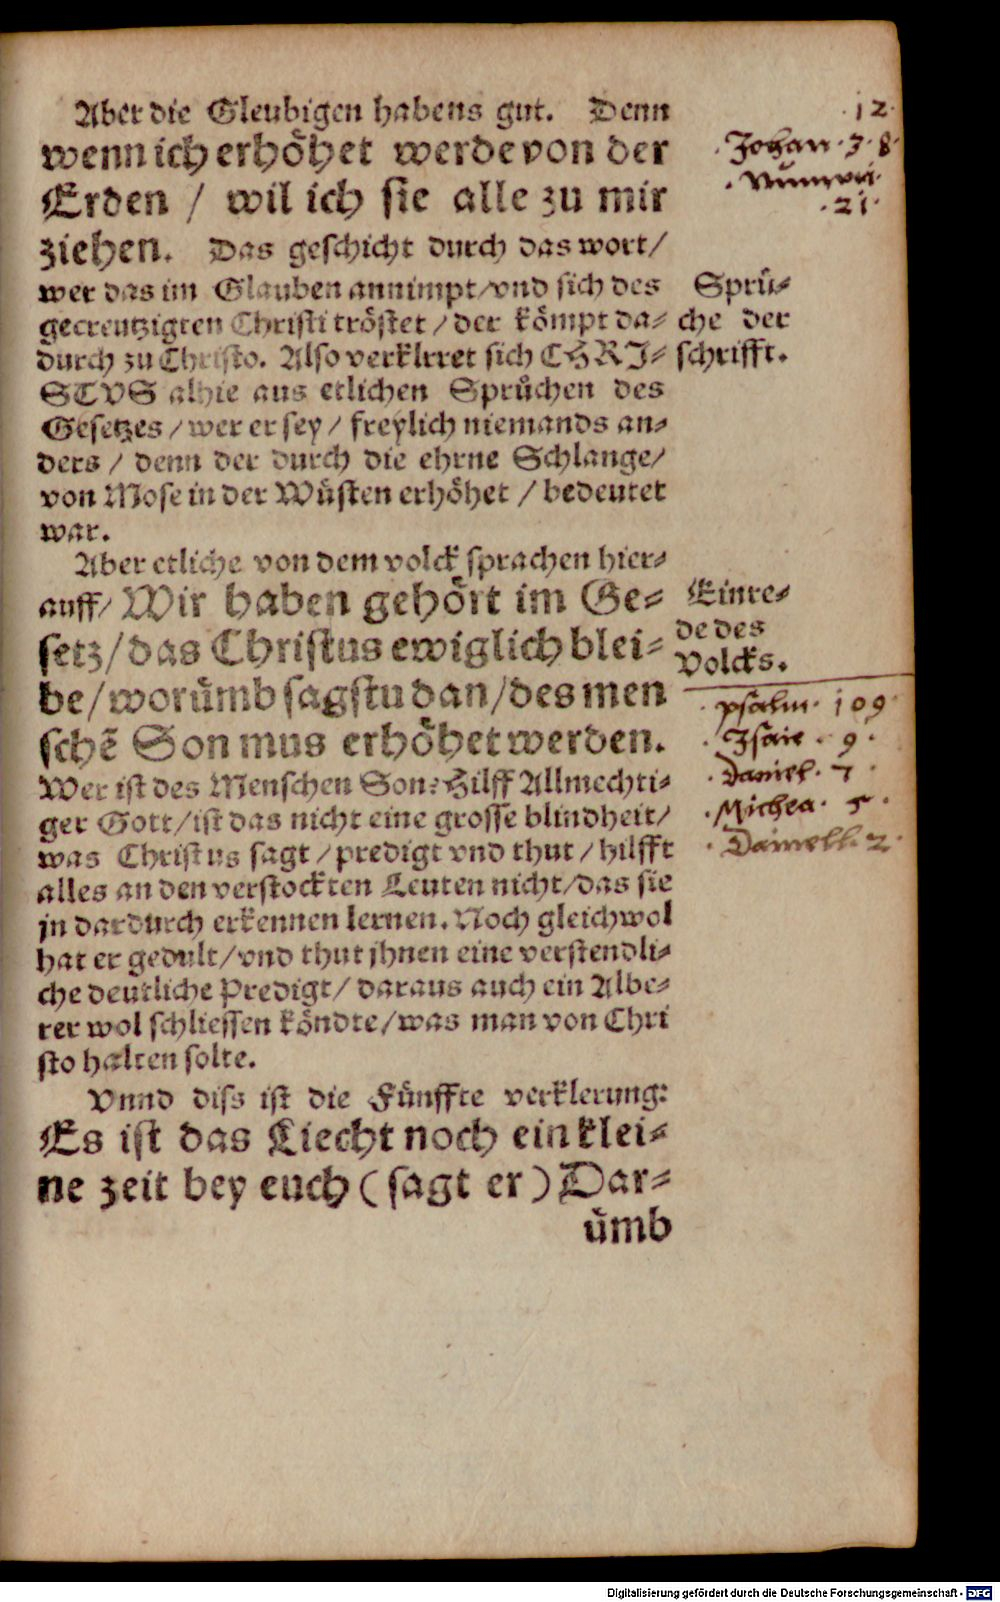 Aber die Gleubigen habens gut. Denn
wenn ich erhöhet werde von der
Erden / wil ich sie alle zu mir
ziehen. Das geschicht durch das wort/
wer das im Glauben annimpt/vnd sich des
gecreutzigten Christi tröstet / der kömpt da-
durch zu Christo. Also verklrret sich CHRI-
STVS alhie aus etlichen Sprůchen des
Gesetzes / wer er sey / freylich niemands an-
ders / denn der durch die ehrne Schlange/
von Mose in der Wüsten erhöhet / bedeutet
war.
Aber etliche von dem volck sprachen hier-
auff/ Wir haben gehört im Ge-
setz/das Christus ewiglich blei-
be/worümb sagstu dan/des men
schē Son mus erhöhet werden.
Wer ist des Menschen Son? Hilff Allmechti-
ger Gott/ist das nicht eine grosse blindheit/
was Christus sagt / predigt vnd thut / hilfft
alles an den verstockten Leuten nicht/das sie
jn dardurch erkennen lernen. Noch gleichwol
hat er gedult/vnd thut jhnen eine verstendli-
che deutliche Predigt/ daraus auch ein Albe-
rer wol schliessen köndte/was man von Chri
sto halten solte.
Vnnd diss ist die Fünffte verklerung:
Es ist das Liecht noch ein klei-
ne zeit bey euch ( sagt er ) Dar-
ümb
12.
Johan. 3. 8.
21.
Sprü-
che der
schrifft.
Einre-
de des
Volcks.
psalm. 109
Isaie. 9.
Daniel. 7.
Michea. 5.
Daniell. 2.
Digitalisierung gefördert durch die Deutsche Forschungsgemeinschaft - DFG